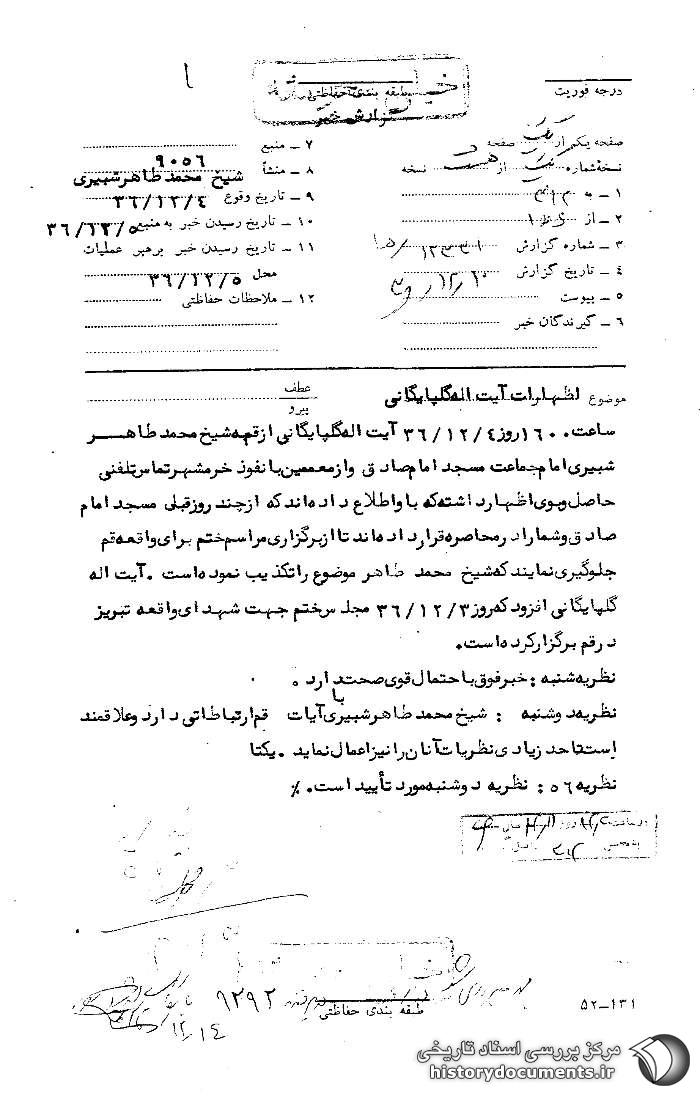 درجه فوریت
طبقه بندی حفاظتی
گزارش خبر
صفحه یکم از یک صفحه
نسخهٔ شماره یک از نسخه
۱ ـ به ۳۱۲
۲ ـ از
۳ ـ شماره گزارش
۴ ـ تاریخ گزارش
۵ ـ پیوست
۶ ـ گیرندگان خبر
۷ ـ منبع ۹۰۵۶
۸ ـ منشأ شیخ محمد طاهر شبیری
۹ ـ تاریخ وقوع ۳۶/۱۲/۴
۱۰ ـ تاریخ رسیدن خبر به منبع ۳۶/۱۲/۵
۱۱ ـ تاریخ رسیدن خبر برهبر عملیات
محل ۳۶/۱۲/۵
۱۲ ـ ملاحظات حفاظتی
موضوع اظهارات آیت اله گلپایگانی
عطف
پیرو
ساعت ۱۶۰۰ روز ۳۶/۱۲/۴ آیت اله گلپایگانی از قم به شیخ محمد طاهر
شبیری امام جماعت مسجد امام صادق و از معممین با نفوذ خرمشهر تماس تلفنی
حاصل و بوی اظهار داشته که باو اطلاع داده اند که از چند روز قبل مسجد امام
صادق و شما را در محاصره قرار داده اند تا از برگزاری مراسم ختم برای واقعه قم
جلوگیری نمایند که شیخ محمد طاهر موضوع را تکذیب نموده است . آیت اله
گلپایگانی افزود که روز ۳۶/۱۲/۳ مجلس ختم جهت شهدای واقعه تبریز
در قم برگزار کرده است.
نظریه شنبه : خبر فوق با احتمال قوی صحت دارد .
نظریه دوشنبه : شیخ محمد طاهر شبیری با آیات قم ارتباطاتی دارد و علاقمند
است تا حد زیادی نظریات آنان را نیز اعمال نماید . یکتا
نظریه ۵۶ : نظریه دوشنبه مورد تأیید است. ٪
۹۲۹۲
طبقه بندی حفاظتی
۱۲/۱۴
۵۲ـ۱۳۱
مرکز بررسی اسناد تاریخی
historydocuments.ir